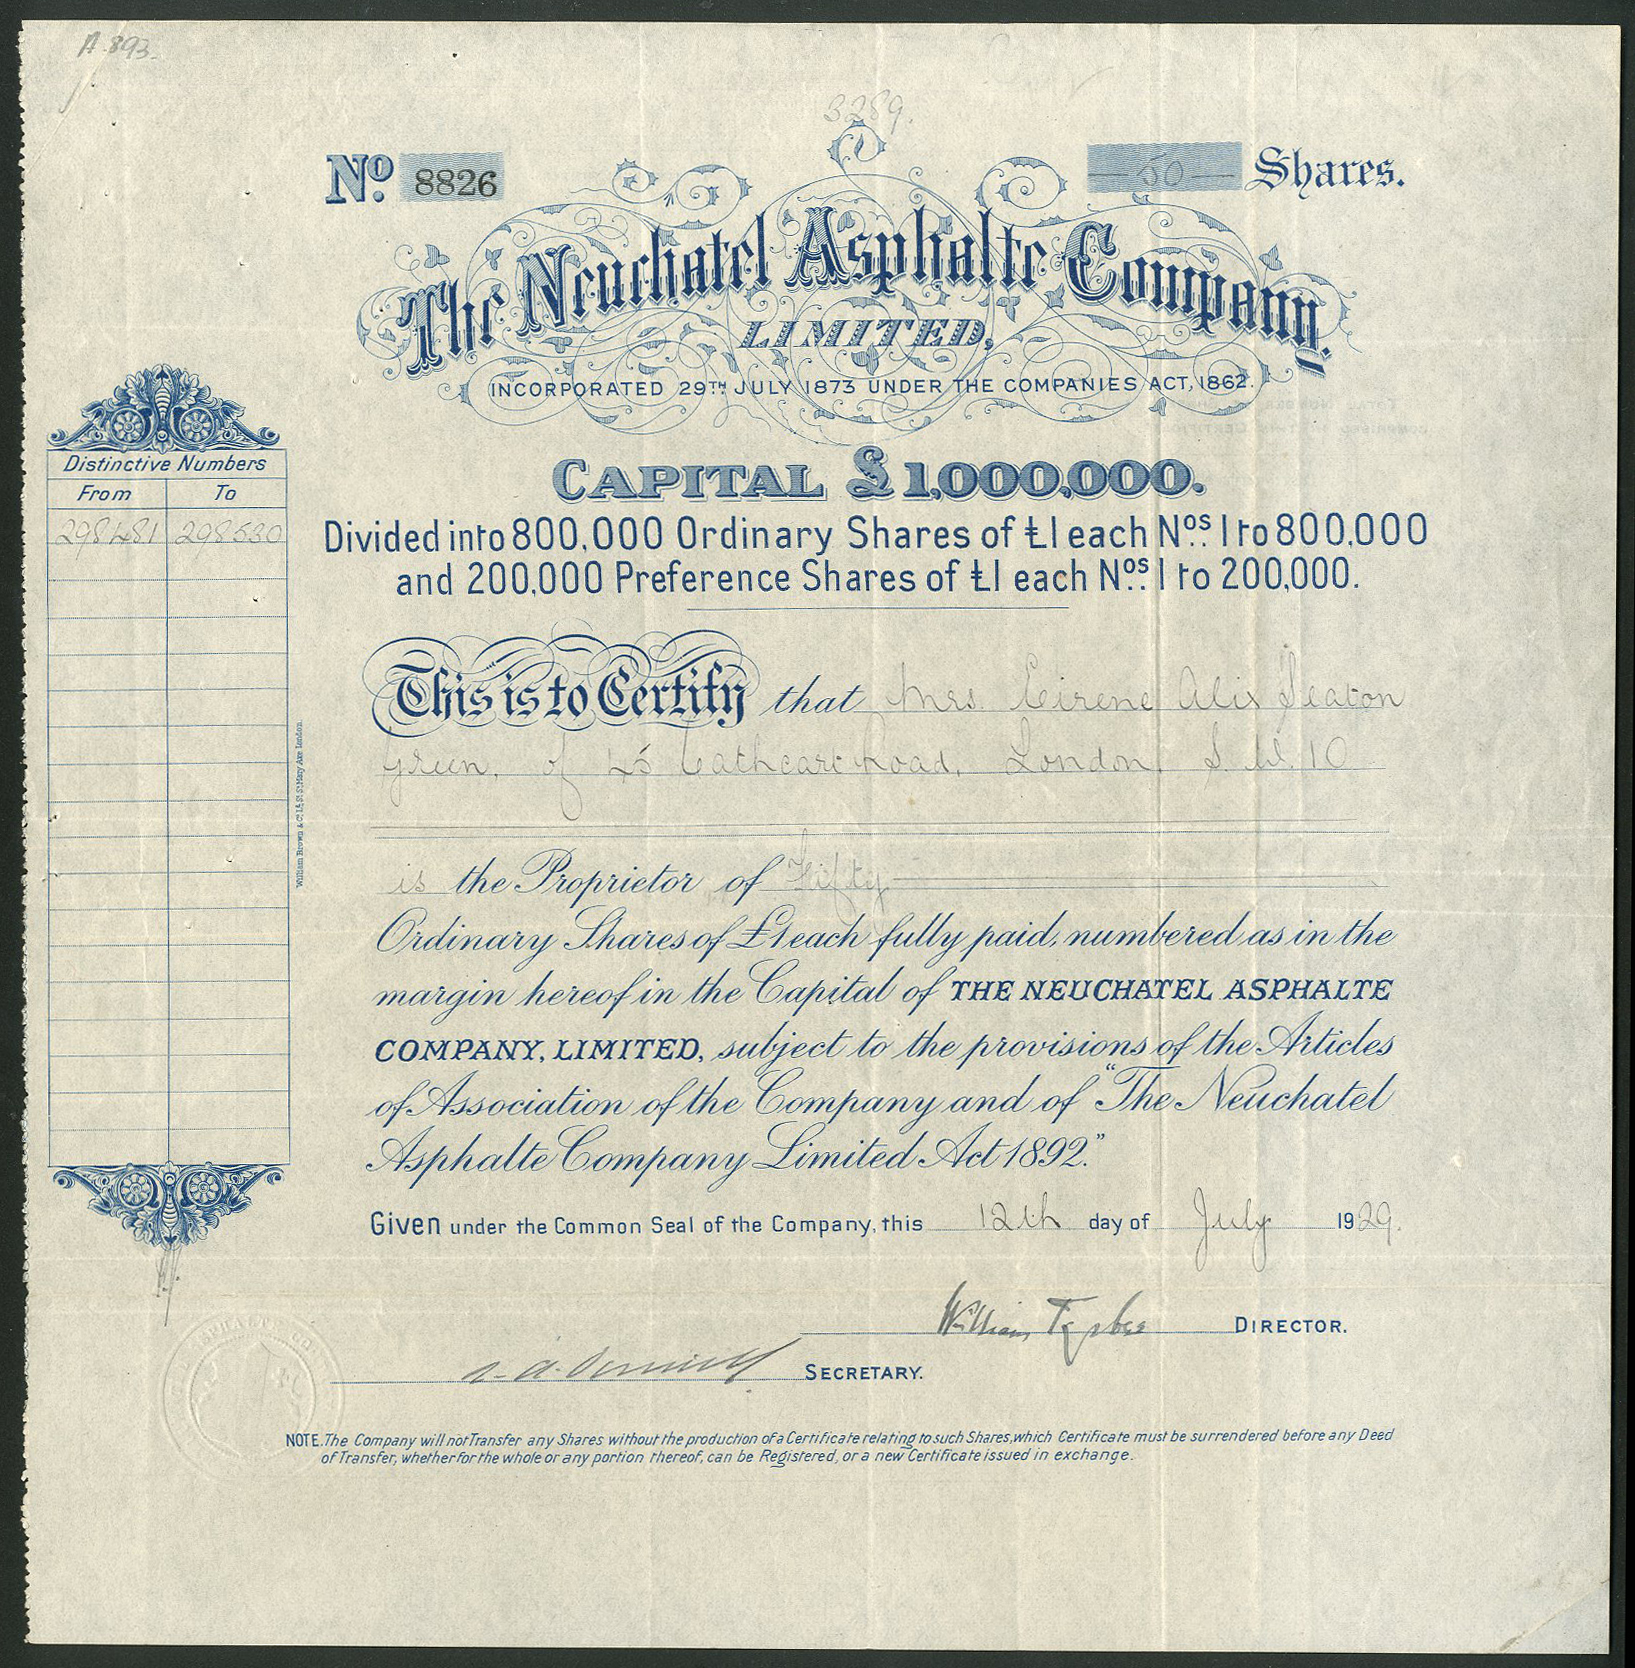 A.893.
3289.
No. 8826
50 Shares.
The Neuchatel Asphalte Company,
LIMITED,
INCORPORATED 29TH JULY 1873 UNDER THE COMPANIES ACT, 1862.
CAPITAL £1,000,000.
Divided into 800,000 Ordinary Shares of £1 each Nos. 1 to 800,000
and 200,000 Preference Shares of £1 each Nos. 1 to 200,000.
Distinctive Numbers
From To
298481 298530
This is to Certify that Mrs. Eirene Alix Seaton
Green, of 45 Cathcart Road, London, S.W.10
is the Proprietor of Fifty
Ordinary Shares of £1 each fully paid, numbered as in the
margin hereof in the Capital of THE NEUCHATEL ASPHALTE
COMPANY, LIMITED, subject to the provisions of the Articles
of Association of the Company and of "The Neuchatel
Asphalte Company Limited Act 1892."
Given under the Common Seal of the Company, this 12th day of July 1929.
William DIRECTOR.
SECRETARY.
NOTE. The Company will not Transfer any Shares without the production of a Certificate relating to such Shares, which Certificate must be surrendered before any Deed
of Transfer, whether for the whole or any portion thereof, can be Registered, or a new Certificate issued in exchange.
William Brown & Co. Ld. St. Mary Axe London.